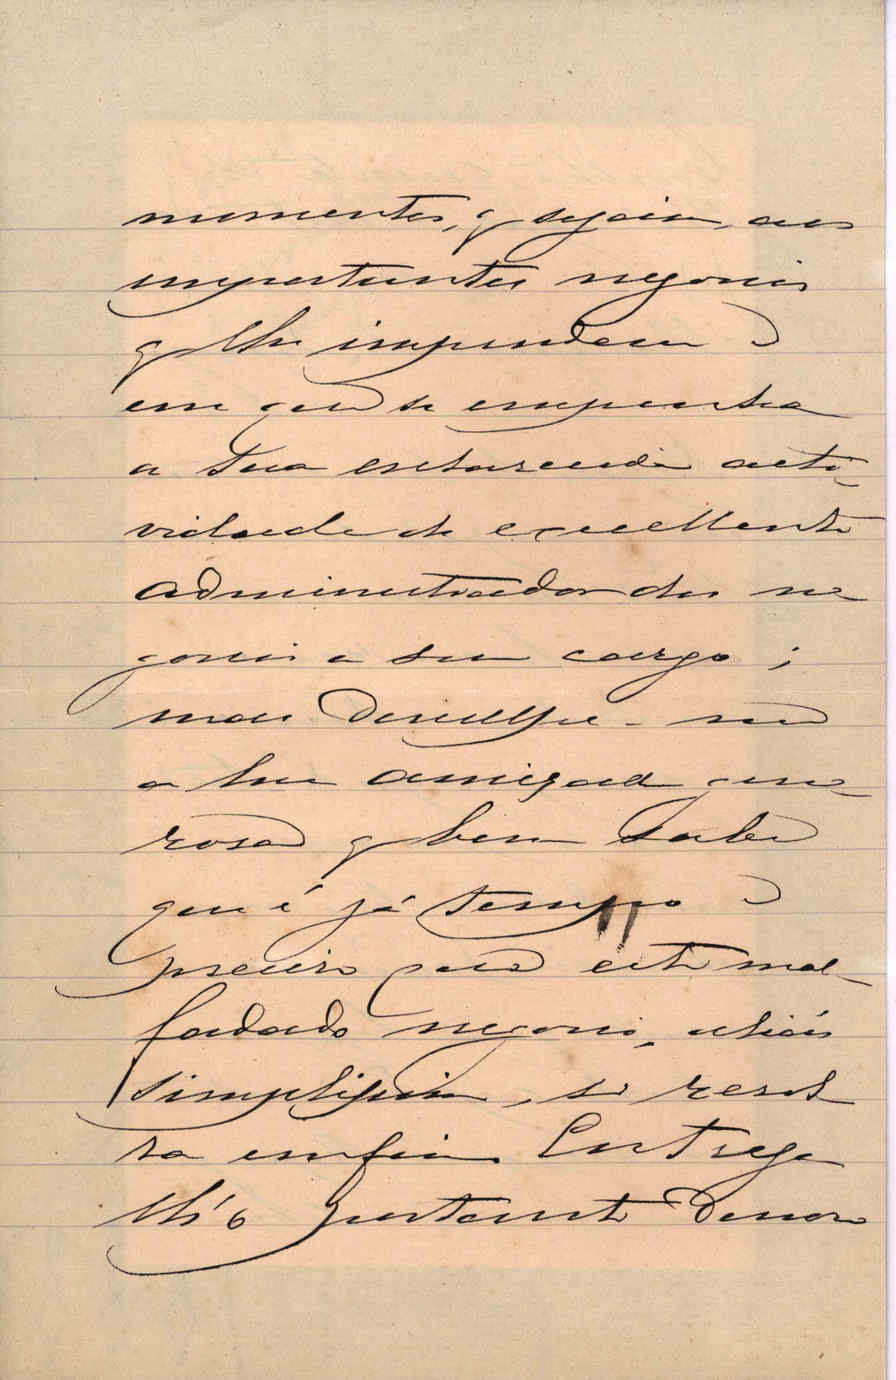 momentos, q sejam, aos
importantes negocios
q lhe impendem e
em que se empenha
a sua esclarecida acti-
vidade de excellente
administrador dos ne
gocios a seu cargo;
mas desculpe-me
a sua amizade gene-
rosa q bem sabe
que é já tempo e
preciso que este mal-
fadado negocio, aliás
simplissimo, se resol
va emfim. Entrego
lh'o portanto